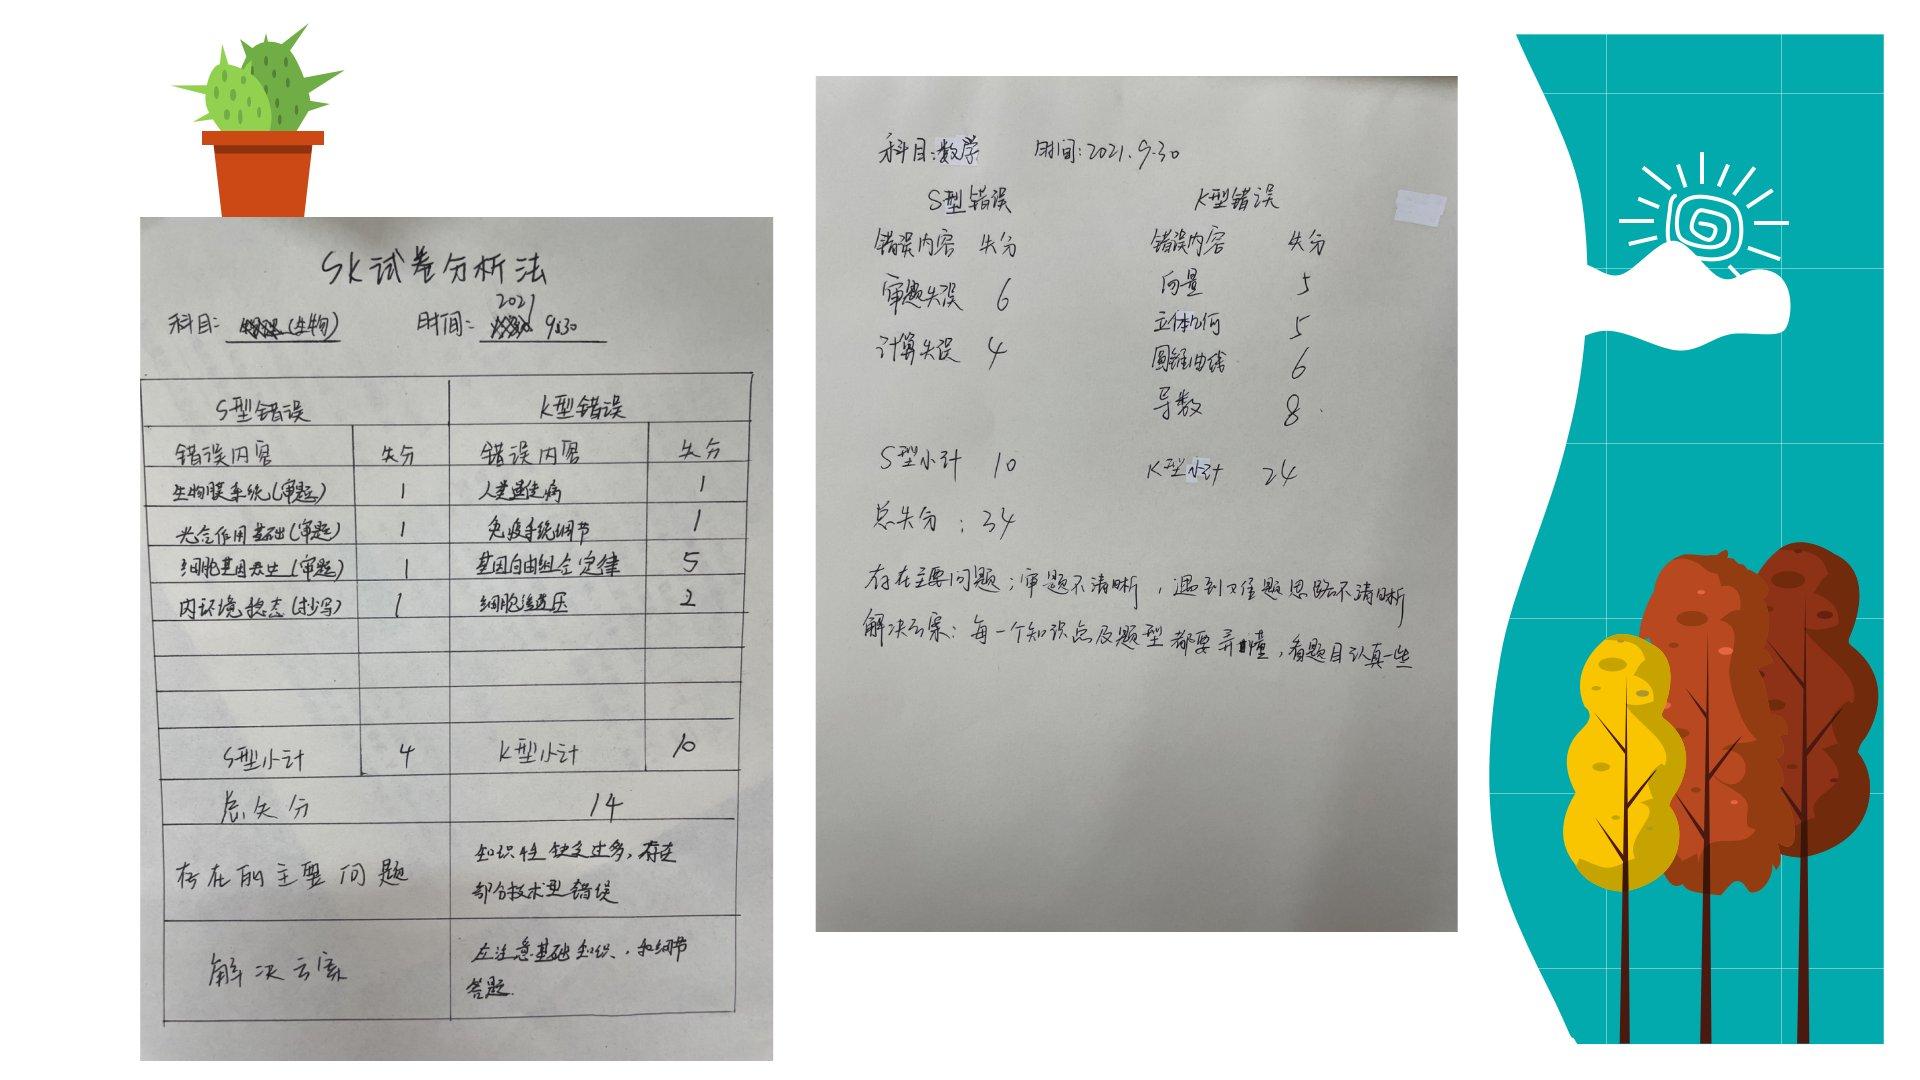 SK试卷分析法
科目: (生物) 时间: 2021 9.30
S型错误 K型错误
错误内容 失分 错误内容 失分
生物膜系统(审题) 1 人类遗传病 1
光合作用基础(审题) 1 免疫系统调节 1
细胞基因表达(审题) 1 基因自由组合定律 5
内环境稳态(抄写) 1 细胞渗透压 2
S型小计 4 K型小计 10
总失分 14
存在的主要问题 知识性缺乏过多,存在
部分技术型错误
解决方案 注意基础知识,和细节
答题.
科目:数学 时间:2021.9.30
S型错误 K型错误
错误内容 失分 错误内容 失分
审题失误 6 向量 5
计算失误 4 立体几何 5
圆锥曲线 6
导数 8
S型小计 10 K型小计 24
总失分: 34
存在主要问题:审题不清晰,遇到难题思路不清晰
解决方案:每一个知识点及题型都要弄懂,看题目认真一些